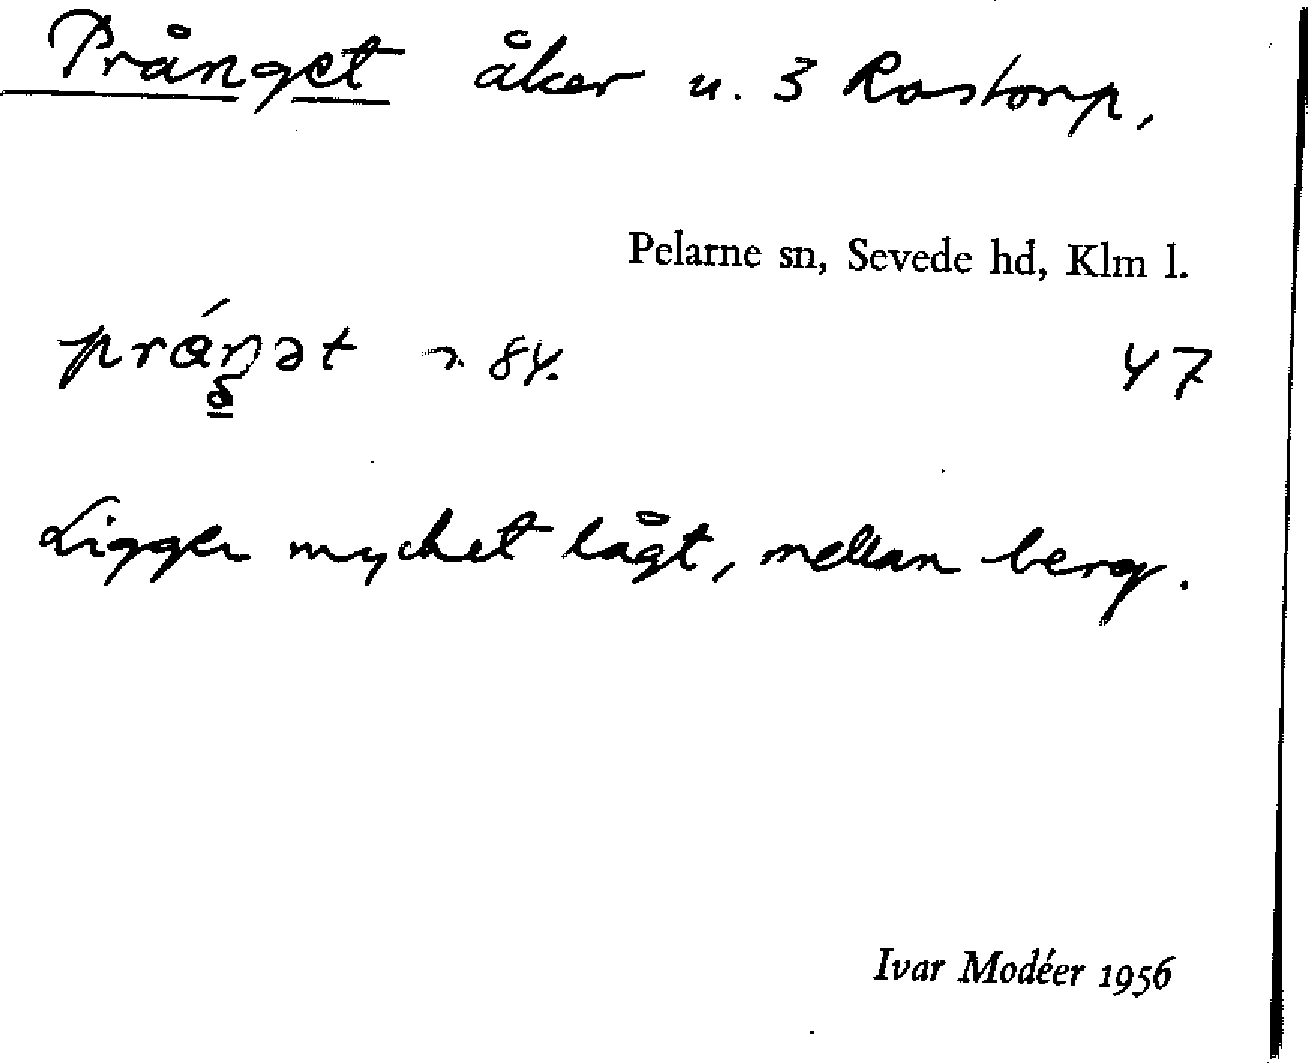 Prånget åker u. 3 Rostorp,
Pelarne sn, Sevede hd, Klm l.
84. 47
Ligger mycket lågt, mellan berg.
Ivar Modéer 1956